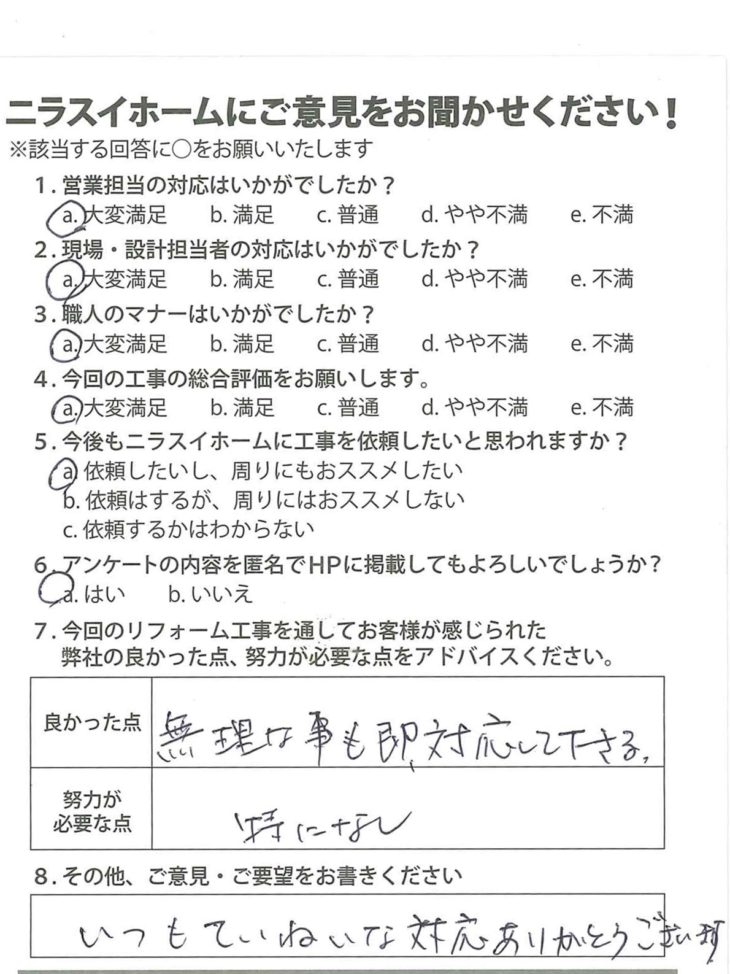 ニラスイホームにご意見をお聞かせください!
※該当する回答に○をお願いいたします
1.営業担当の対応はいかがでしたか?
a.大変満足 b.満足 c.普通 d.やや不満 e.不満
2.現場・設計担当者の対応はいかがでしたか?
a.大変満足 b.満足 c.普通 d.やや不満 e.不満
3.職人のマナーはいかがでしたか?
a.大変満足 b.満足 c.普通 d.やや不満 e.不満
4.今回の工事の総合評価をお願いします。
a.大変満足 b.満足 c.普通 d.やや不満 e.不満
5.今後もニラスイホームに工事を依頼したいと思われますか?
a.依頼したいし、周りにもおススメしたい
b.依頼はするが、周りにはおススメしない
c.依頼するかはわからない
6.アンケートの内容を匿名でHPに掲載してもよろしいでしょうか?
a.はい b.いいえ
7.今回のリフォーム工事を通してお客様が感じられた
弊社の良かった点、努力が必要な点をアドバイスください。
良かった点 無理な事も即、対応して下さる。
努力が
必要な点 特になし
8.その他、ご意見・ご要望をお書きください
いつもていねいな対応ありがとうございます